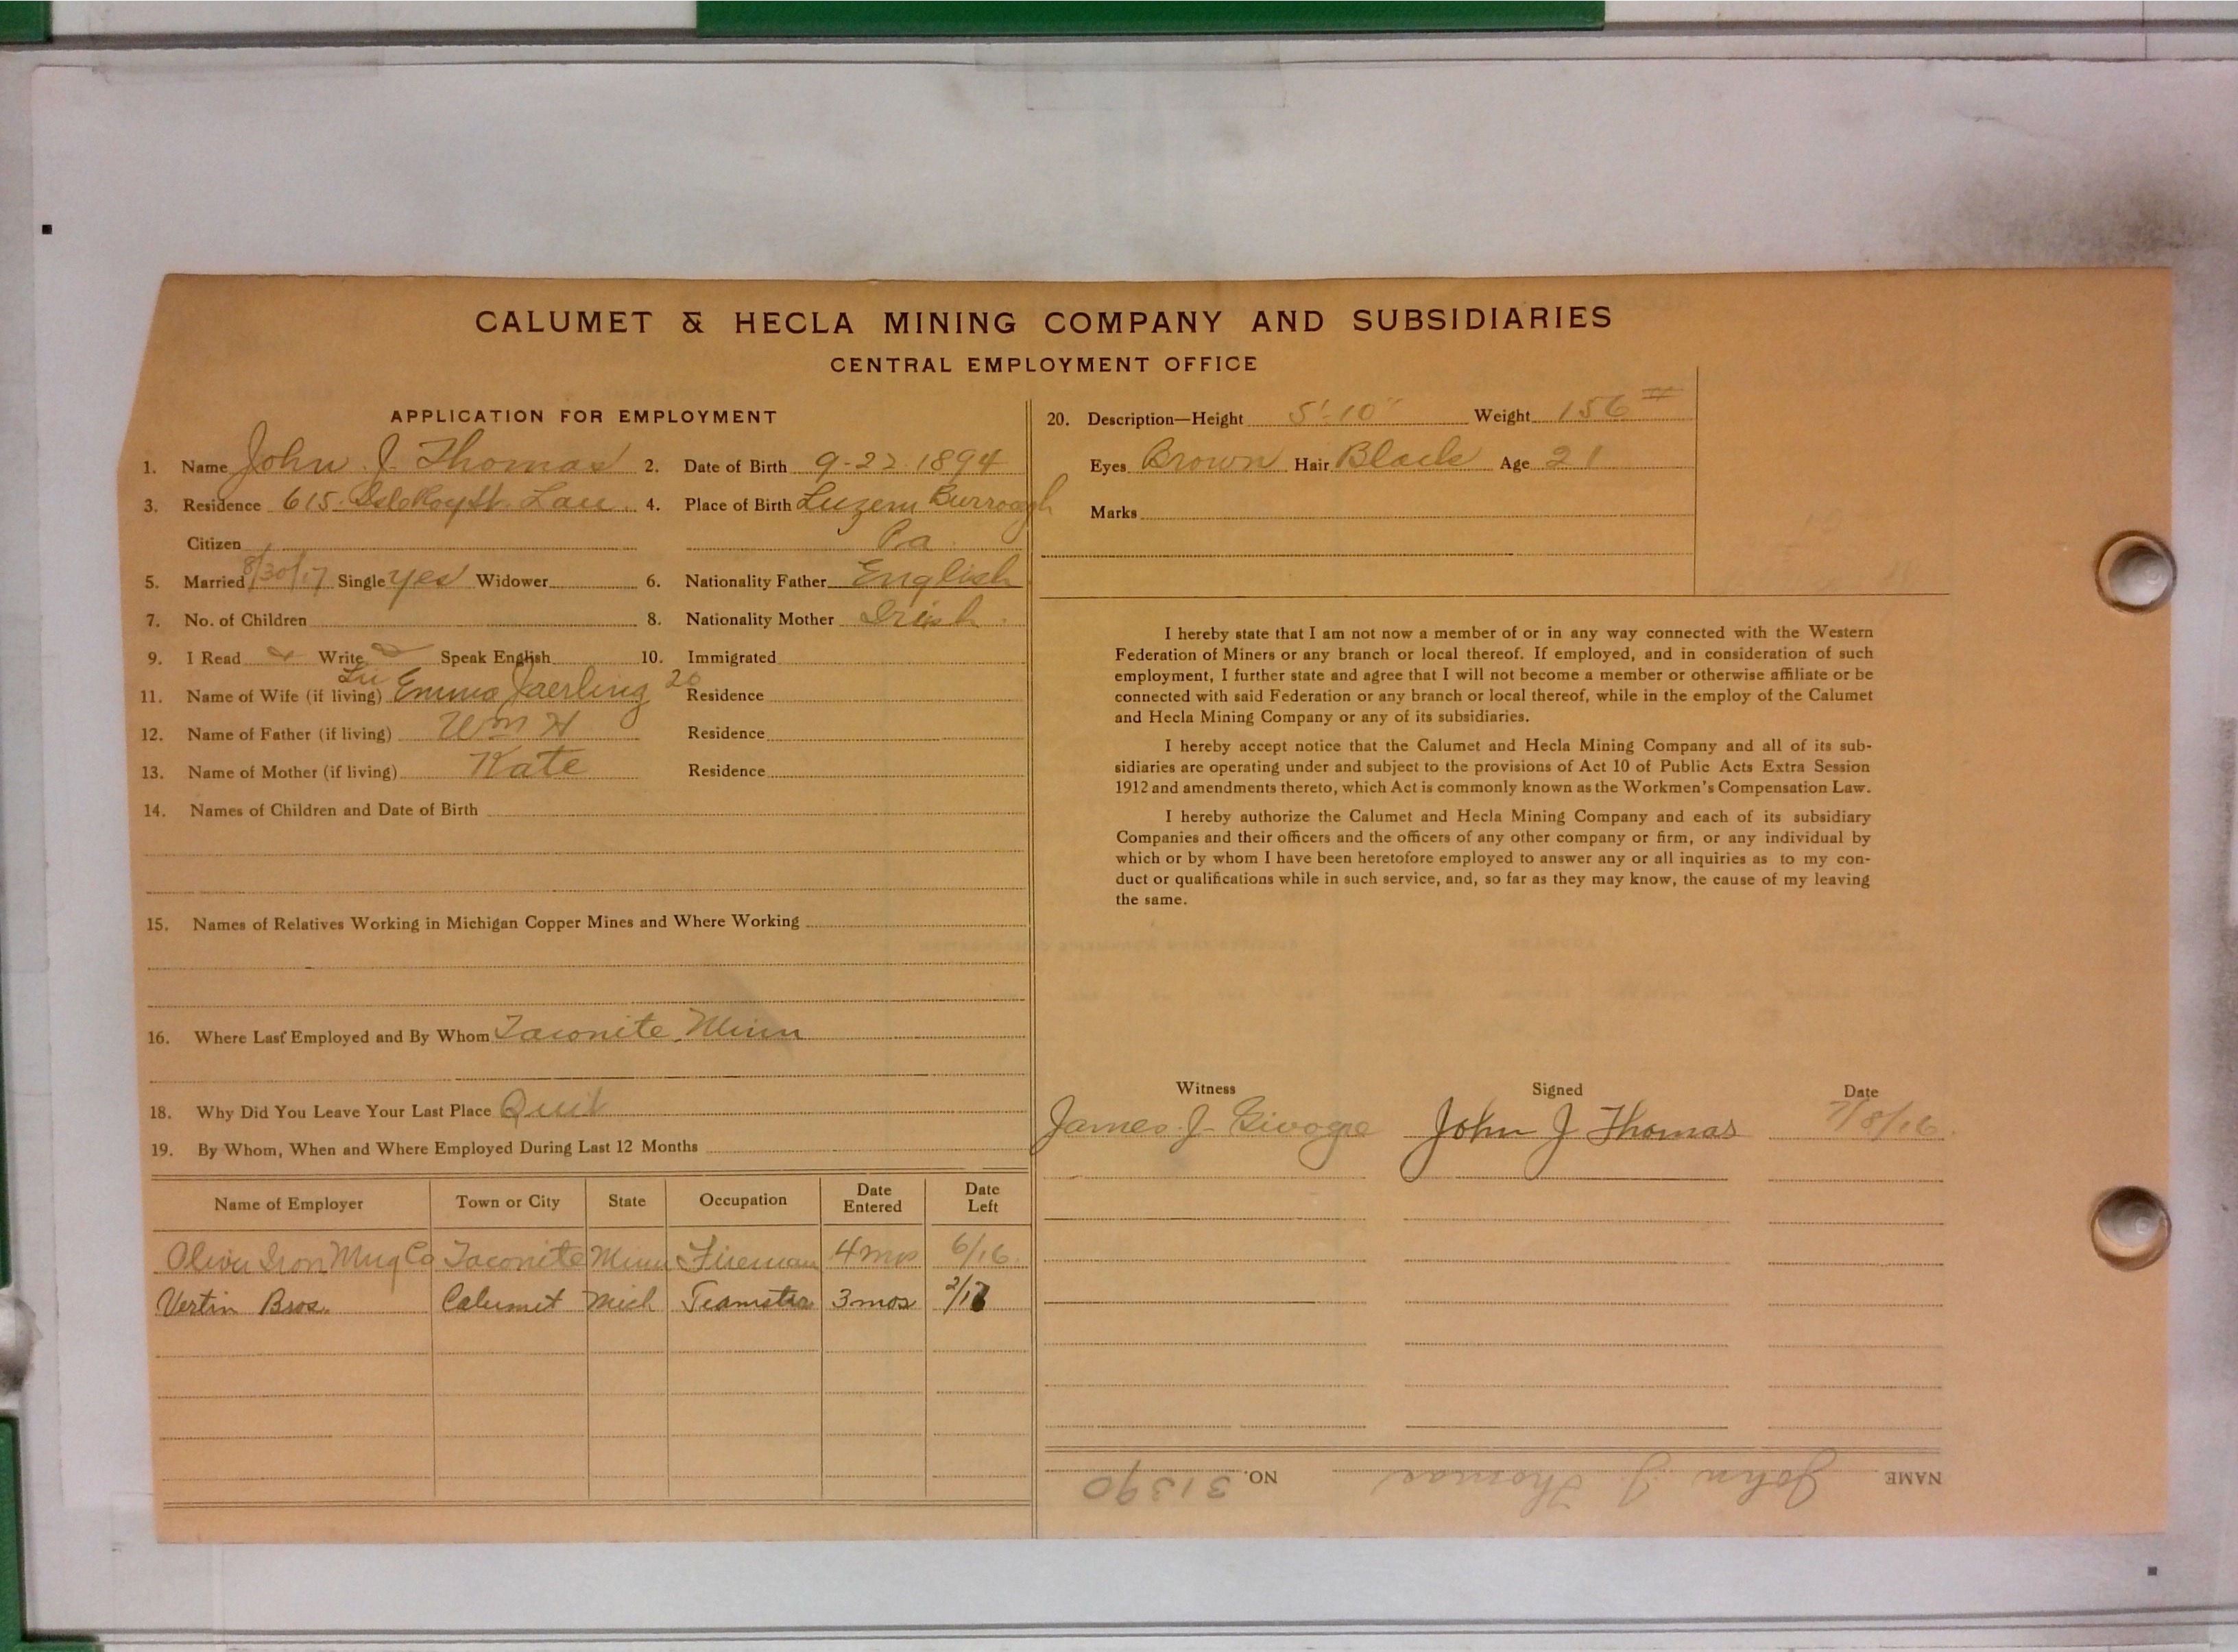 CALUMET & HECLA MINING COMPANY AND SUBSIDIARIES
CENTRAL EMPLOYMENT OFFICE
APPLICATION FOR EMPLOYMENT
1. Name John J. Thomas 2. Date of Birth 9-22 1894
3. Residence 615 St. Lau. 4. Place of Birth Luzern Burrough
Citizen Pa.
5. Married 8/30/17 Single yes Widower 6. Nationality Father English
7. No. of Children 8. Nationality Mother Irish.
9. I Read Write Speak English 10. Immigrated
11. Name of Wife (if living) Emma Jaerling 20 Residence
12. Name of Father (if living) Wm H Residence
13. Name of Mother (if living) Kate Residence
14. Names of Children and Date of Birth
15. Names of Relatives Working in Michigan Copper Mines and Where Working
16. Where Last Employed and By Whom Taconite, Minn
18. Why Did You Leave Your Last Place Quit
19. By Whom, When and Where Employed During Last 12 Months
Name of Employer Town or City State Occupation Date Entered Date Left
Oliver Iron Mng Co Taconite Minn Fireman 4 mos 6/16.
Vertin Bros. Calumet Mich Teamster 3 mos 2/17
20. Description—Height 5'-10" Weight 156 #
Eyes Brown Hair Black Age 21
Marks
I hereby state that I am not now a member of or in any way connected with the Western
Federation of Miners or any branch or local thereof. If employed, and in consideration of such
employment, I further state and agree that I will not become a member or otherwise affiliate or be
connected with said Federation or any branch or local thereof, while in the employ of the Calumet
and Hecla Mining Company or any of its subsidiaries.
I hereby accept notice that the Calumet and Hecla Mining Company and all of its sub-
sidiaries are operating under and subject to the provisions of Act 10 of Public Acts Extra Session
1912 and amendments thereto, which Act is commonly known as the Workmen's Compensation Law.
I hereby authorize the Calumet and Hecla Mining Company and each of its subsidiary
Companies and their officers and the officers of any other company or firm, or any individual by
which or by whom I have been heretofore employed to answer any or all inquiries as to my con-
duct or qualifications while in such service, and, so far as they may know, the cause of my leaving
the same.
Witness Signed Date
James J. John J Thomas 7/8/16.
NAME John J. Thomas NO. 31390